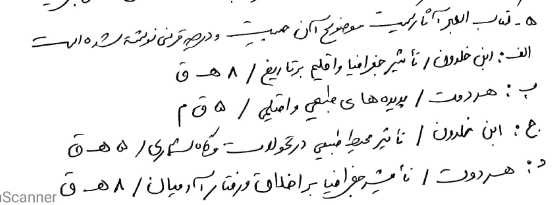 ۵ - کتاب العبر آثار کیست موضوع آن چیست و در چه قرنی نوشته شده است
الف: ابن خلدون / تأثیر جغرافیا و اقلیم بر تاریخ / ۸ هـ ق
ب: هردوت / پدیده های طبیعی و اقلیمی / ۵ ق م
ج: ابن خلدون / تاثیر محیط طبیعی در تحولات و گاه شماری / ۵ هـ ق
د: هردوت / تأثیر جغرافیا بر اخلاق و رفتار آدمیان / ۸ هـ ق
Scanner